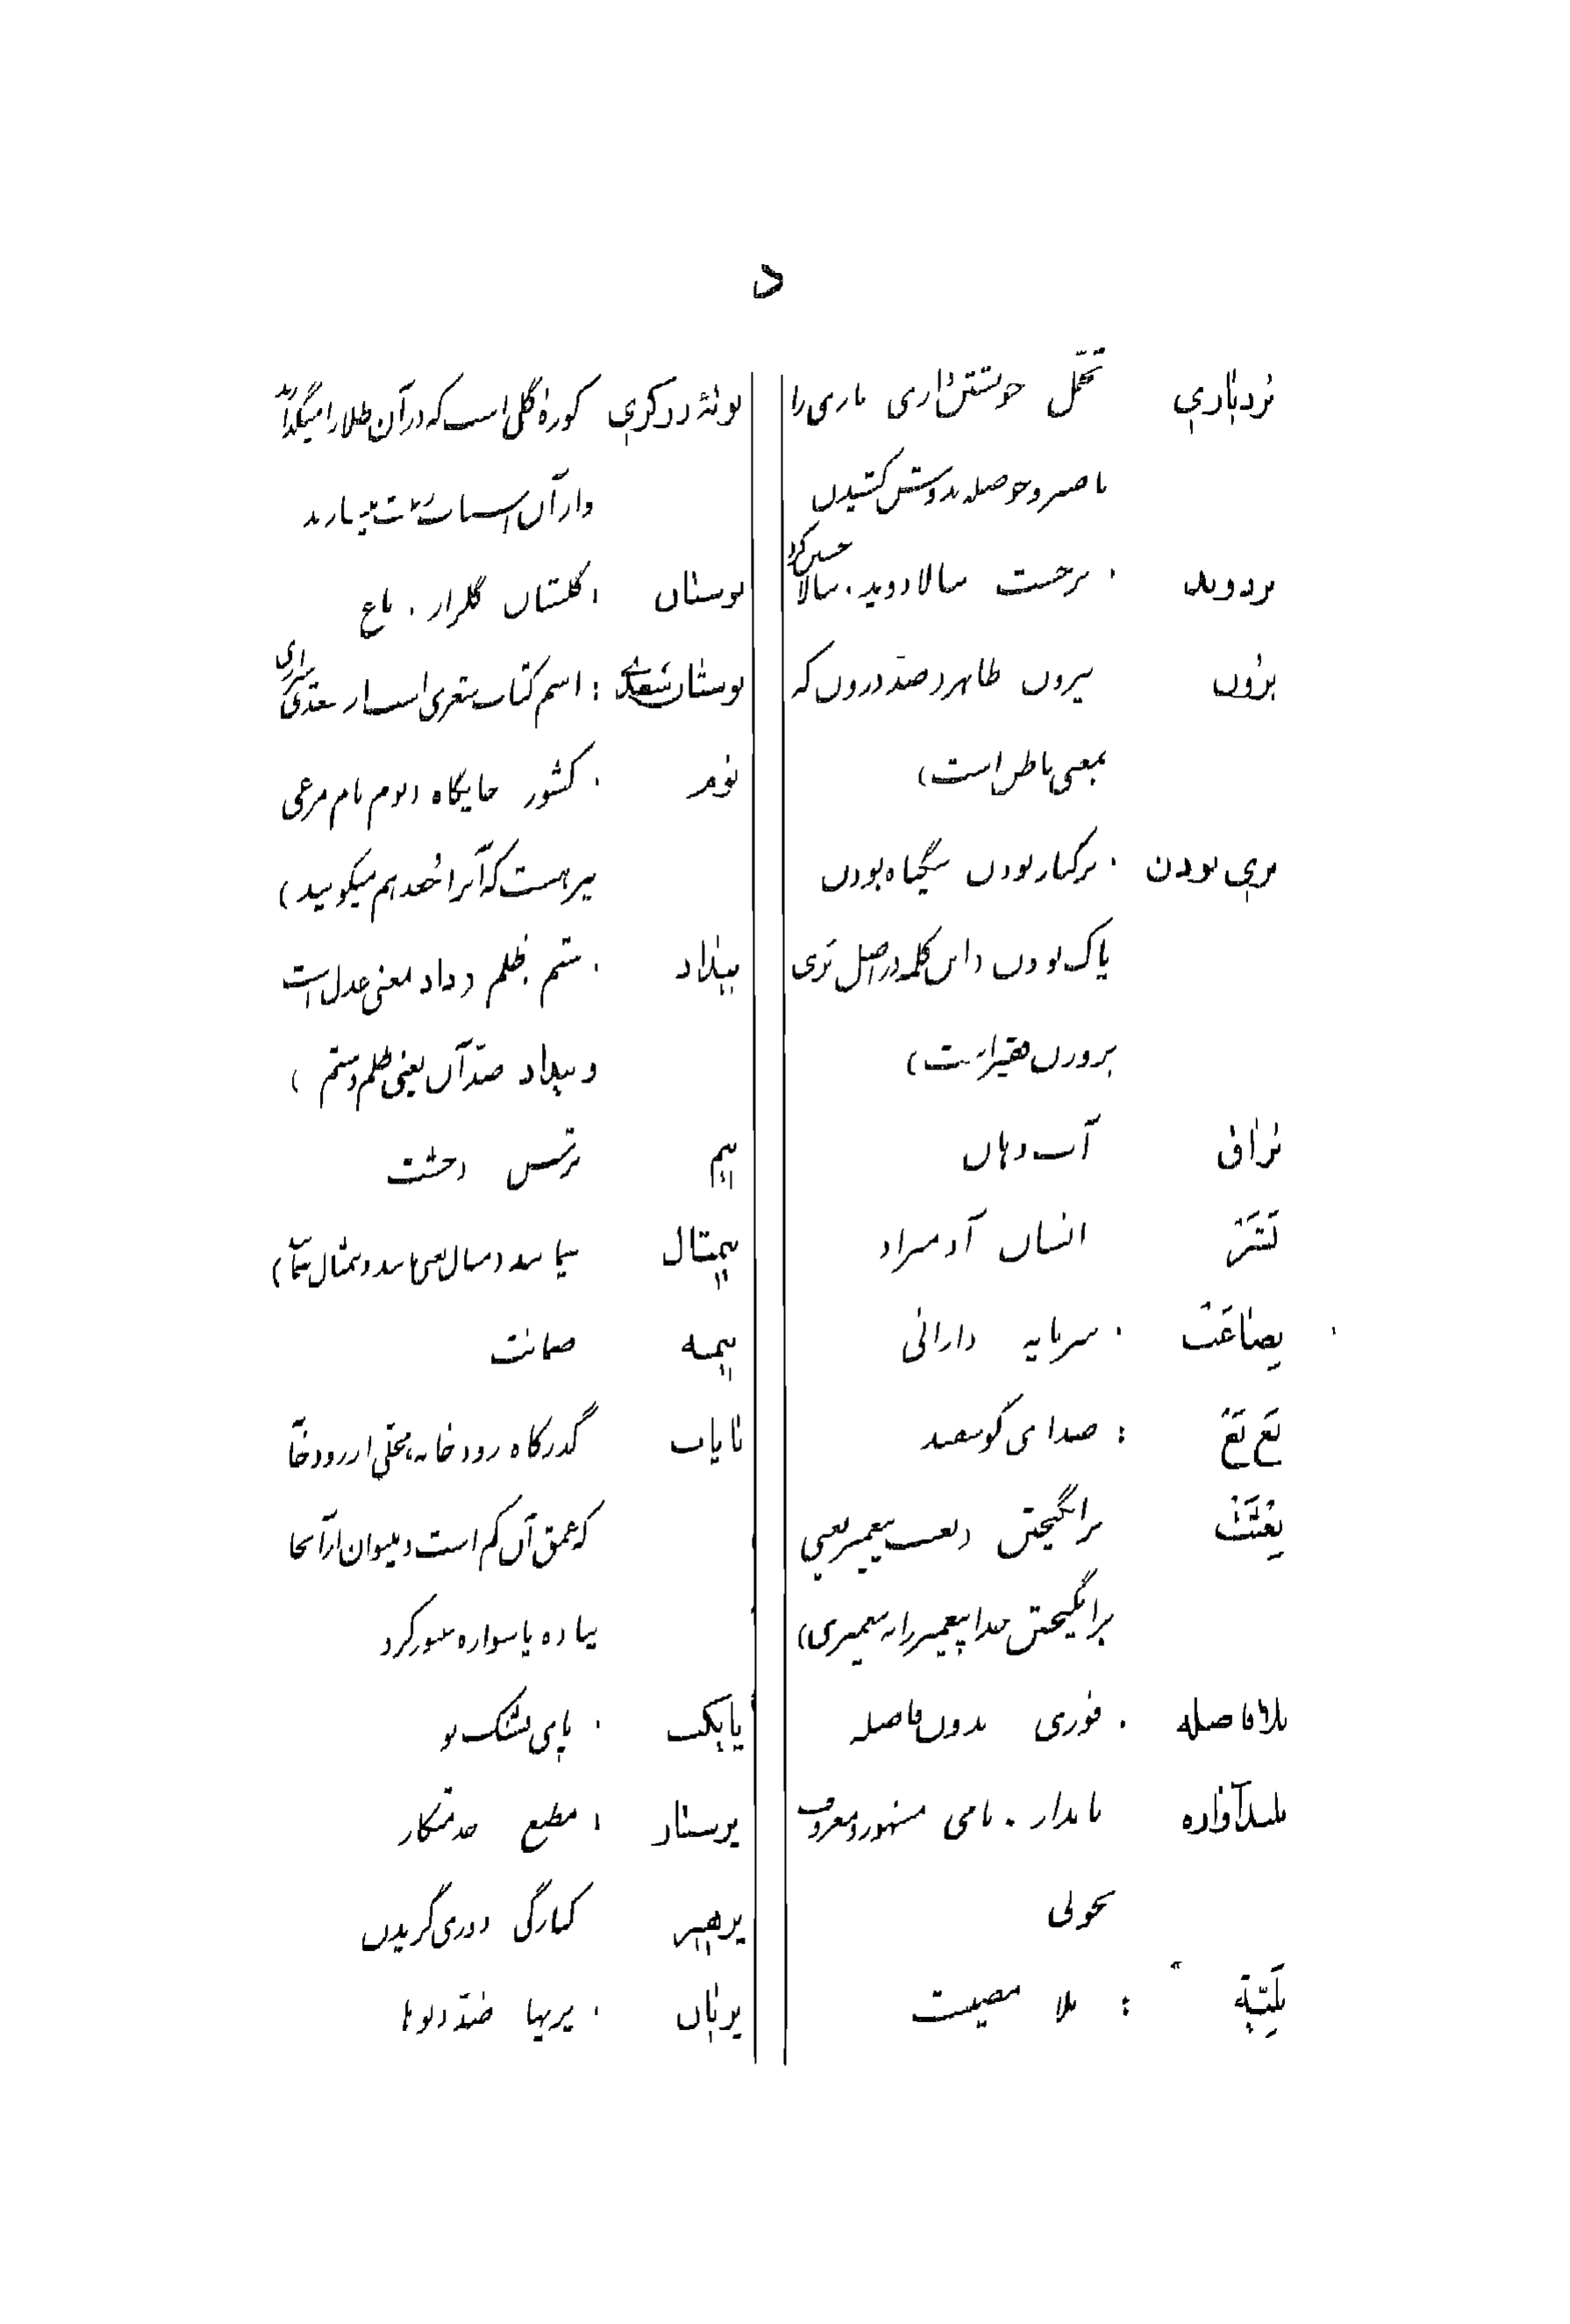 د
بردباری تحمّل خویشتن‌داری باری را
با صبر و حوصله بدوش کشیدن
بردوید . برجست ببالا دوید . ببالا
برون بیرون ظاهر (ضدّ درون که
بمعنی باطن است)
بری بودن . برکنار بودن بیگناه بودن
پاک بودن (این کلمه در اصل بری
بزاق آب دهان
بَشَر انسان آدمیزاد
بِضاعَت . سرمایه دارائی
بَع بَع : صدای گوسفند
بِعْثَت برانگیختن (بعثت پیغمبر یعنی
برانگیختن خدا پیغمبر را به پیغمبری)
بلافاصله . فوری بدون فاصله
بلندآوازه نامدار . نامی مشهور و معروف
بَلِیّه : بلا مصیبت
بوتهٔ زرگری کورهٔ گلی است که در آن طلا را میگدازند
بوستان : گلستان گلزار . باغ
بوستان سعدی : اسم کتاب شعری است از سعدی شیرازی
بوم . کشور جایگاه (بوم نام مرغی
نیز هست که آنرا جغد هم میگویند)
بیداد . ستم ظلم (داد بمعنی عدل است
و بیداد ضدّ آن یعنی ظلم و ستم)
بیم ترس وحشت
بیمثال بیمانند (مثال یعنی مانند و بیمثال بیمانند)
بیمه ضمانت
پایاب گذرگاه رودخانه، محلّی از رودخانه
که عمق آن کم است و میتوان از آنجا
پیاده یا سواره عبور کرد
پاپک . پاپی نشنک تو
پرستار : مطیع خدمتکار
پرهیز کنارگی دوری گزیدن
پریان . پریها ضدّ دیوها